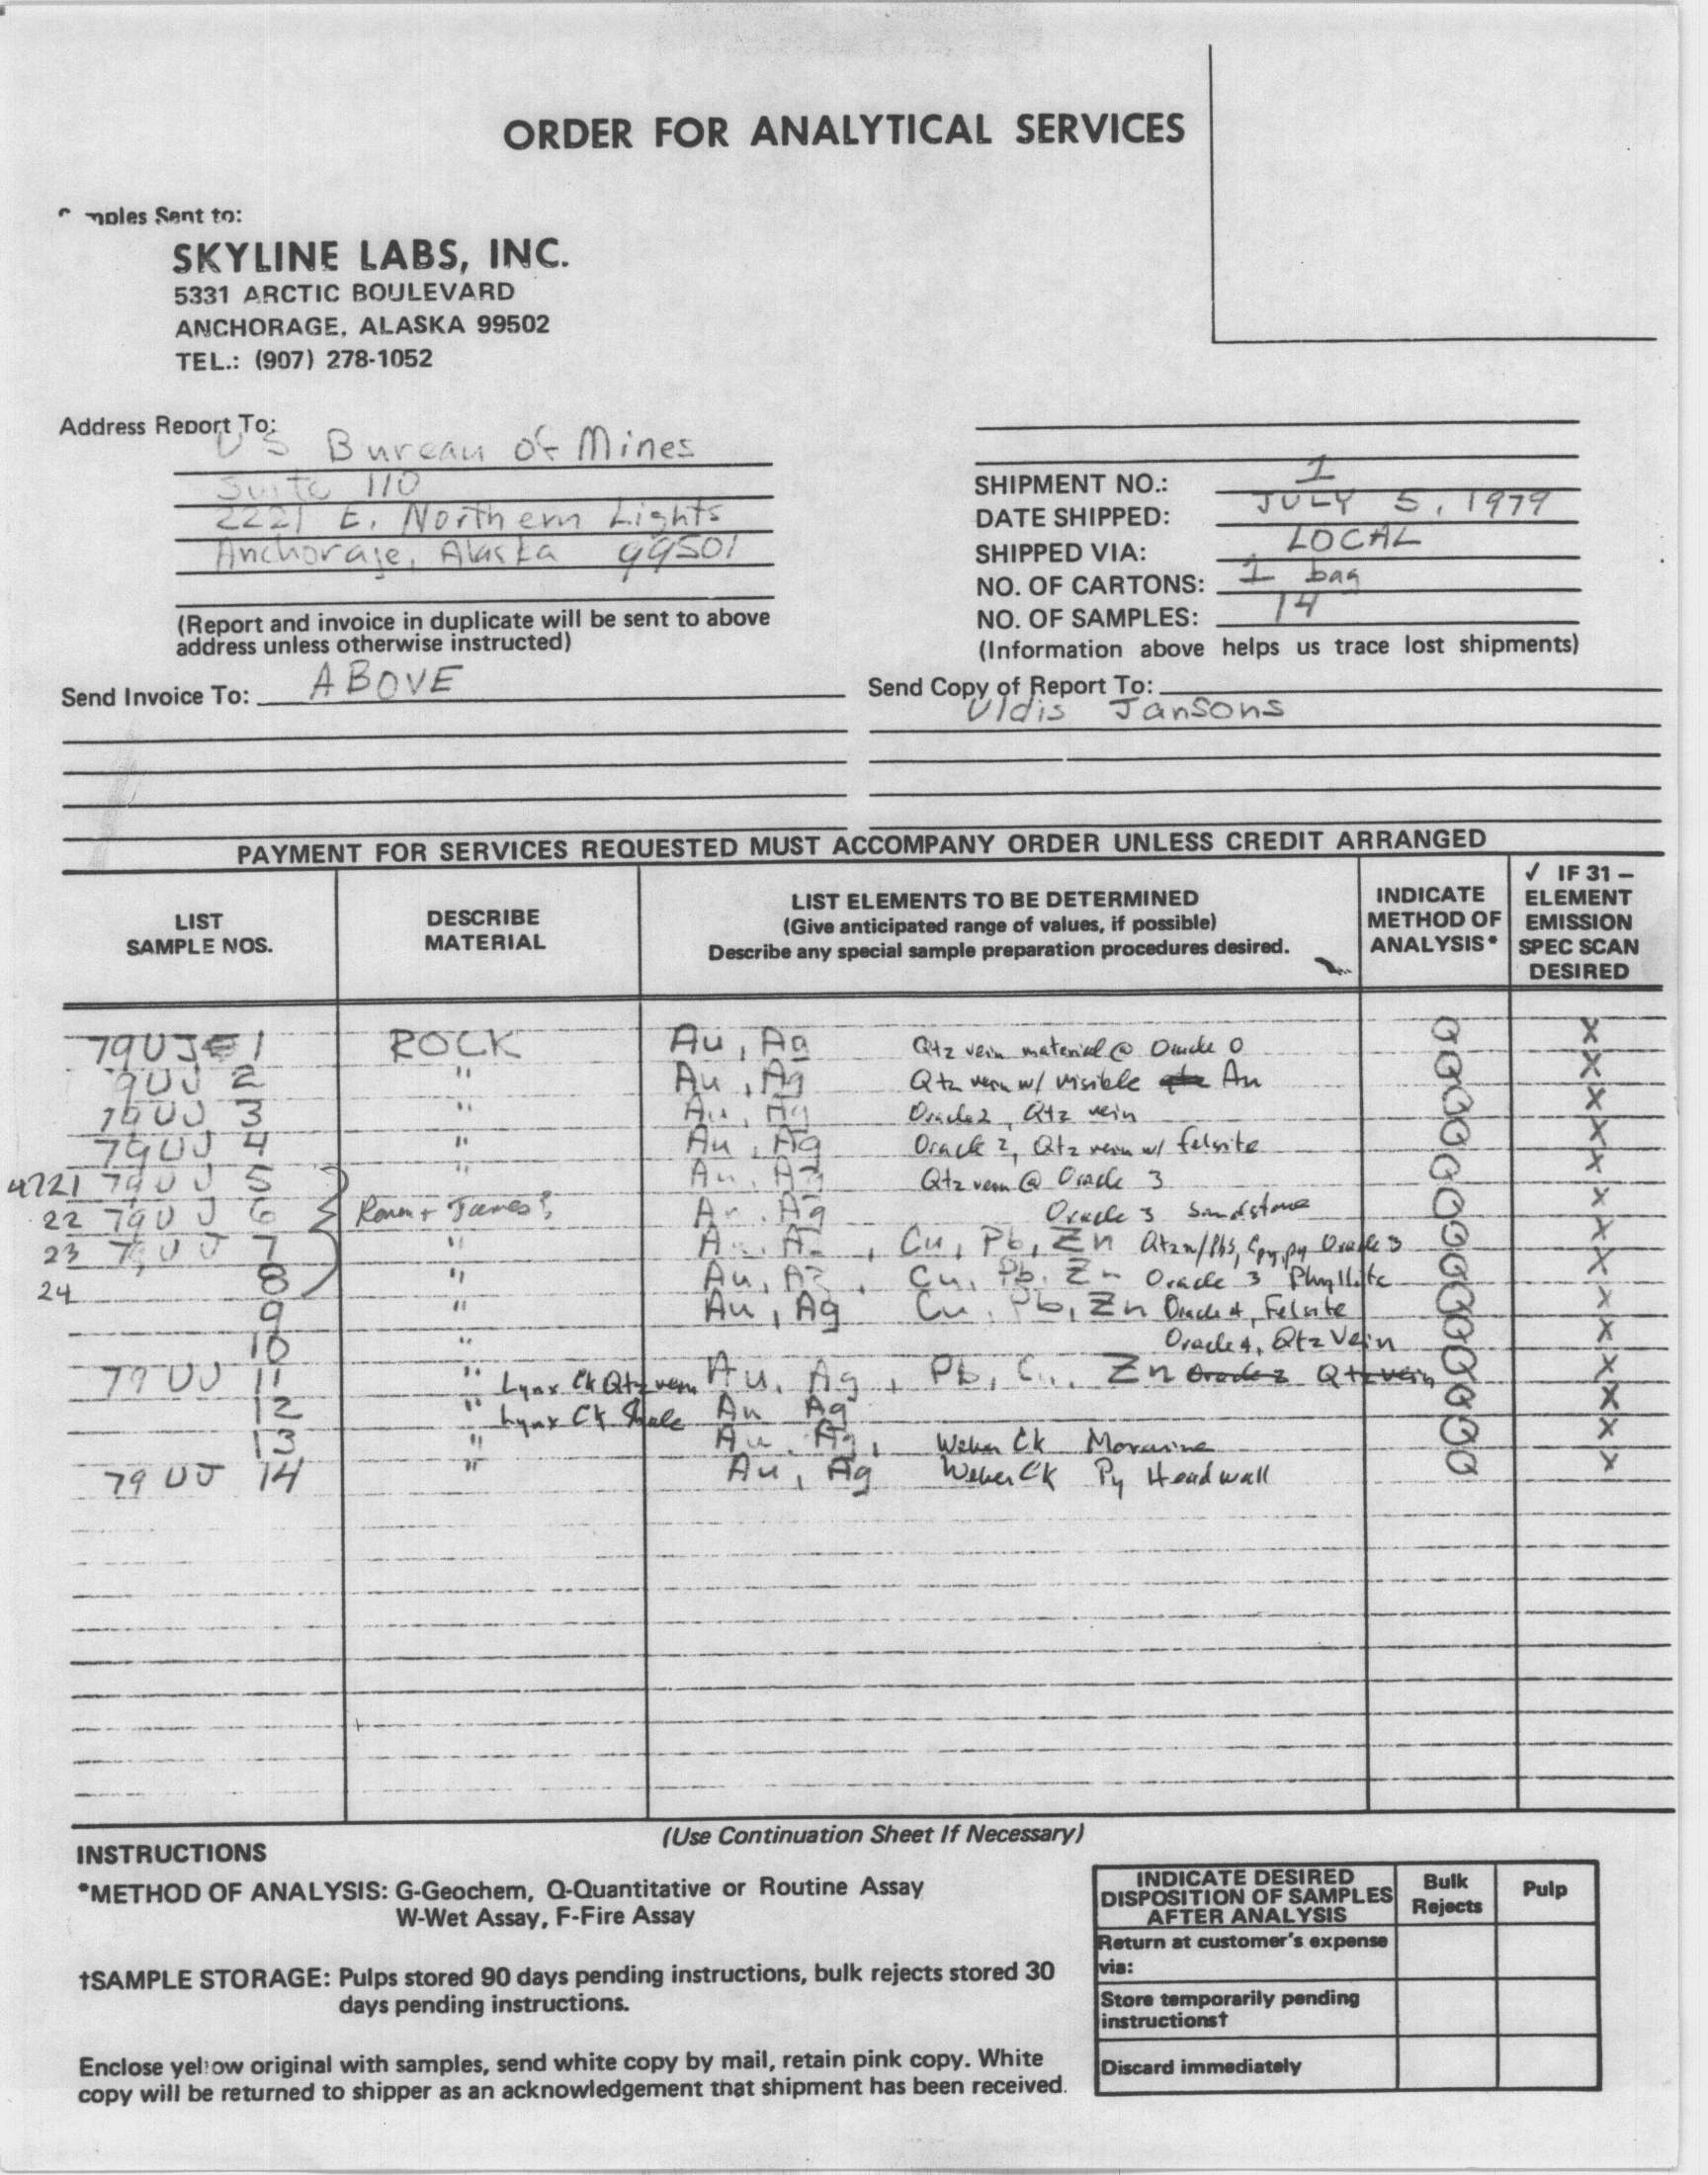 ORDER FOR ANALYTICAL SERVICES
mples Sent to:
SKYLINE LABS, INC.
5331 ARCTIC BOULEVARD
ANCHORAGE, ALASKA 99502
TEL.: (907) 278-1052
Address Report To:
US Bureau of Mines
Suite 110
2221 E. Northern Lights
Anchorage, Alaska 99501
(Report and invoice in duplicate will be sent to above
address unless otherwise instructed)
SHIPMENT NO.: 1
DATE SHIPPED: JULY 5, 1979
SHIPPED VIA: LOCAL
NO. OF CARTONS: 1 bag
NO. OF SAMPLES: 14
(Information above helps us trace lost shipments)
Send Invoice To: ABOVE
Send Copy of Report To:
Uldis Jansons
PAYMENT FOR SERVICES REQUESTED MUST ACCOMPANY ORDER UNLESS CREDIT ARRANGED
LIST
SAMPLE NOS.
DESCRIBE
MATERIAL
LIST ELEMENTS TO BE DETERMINED
(Give anticipated range of values, if possible)
Describe any special sample preparation procedures desired.
INDICATE
METHOD OF
ANALYSIS*
✓ IF 31 –
ELEMENT
EMISSION
SPEC SCAN
DESIRED
79UJ 1 ROCK Au, Ag Qtz vein material @ Oracle 0 Q X
79UJ 2 " Au, Ag Qtz vein w/ visible Au Q X
79UJ 3 " Au, Ag Oracle 2, Qtz vein Q X
79UJ 4 " Au, Ag Oracle 2, Qtz vein w/ felsite Q X
4721 79UJ 5 " Au, Ag Qtz vein @ Oracle 3 Q X
22 79UJ 6 James? Au, Ag Oracle 3 Sandstone Q X
23 79UJ 7 " Au, Ag, Cu, Pb, Zn Qtz w/ PbS, Cpy, py Oracle 3 Q X
24 8 " Au, Ag, Cu, Pb, Zn Oracle 3 Phyllite Q X
9 " Au, Ag Cu, Pb, Zn Oracle 4, Felsite Q X
10 " Oracle 4, Qtz Vein Q X
79UJ 11 " Lynx Ck Qtz vein Au, Ag, Pb, Cu, Zn Oracle 2 Qtz vein Q X
12 " Lynx Ck Shale Au Ag Q X
13 " Au, Ag, Weber Ck Moraine Q X
79 UJ 14 " Au, Ag Weber Ck Py Headwall Q X
(Use Continuation Sheet If Necessary)
INSTRUCTIONS
*METHOD OF ANALYSIS: G-Geochem, Q-Quantitative or Routine Assay
W-Wet Assay, F-Fire Assay
†SAMPLE STORAGE: Pulps stored 90 days pending instructions, bulk rejects stored 30
days pending instructions.
Enclose yellow original with samples, send white copy by mail, retain pink copy. White
copy will be returned to shipper as an acknowledgement that shipment has been received.
INDICATE DESIRED
DISPOSITION OF SAMPLES
AFTER ANALYSIS
Bulk
Rejects
Pulp
Return at customer's expense
via:
Store temporarily pending
instructions†
Discard immediately